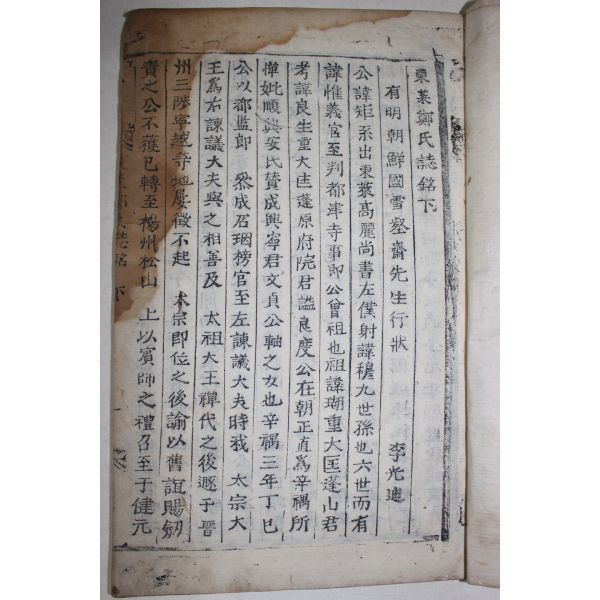 東萊鄭氏誌銘下
有明朝鮮國雪壑齋先生行狀 李光迪
公諱矩系出東萊高麗尚書左僕射諱穆九世孫也六世而有
諱惟義官至判都津寺事即公曾祖也祖諱瑚重大匡蓬山君
考諱良生重大匡蓬原府院君謚良度公在朝正直爲辛禑所
憚妣順興安氏賛成興寧君文貞公軸之女也辛禑三年丁巳
公以都监郎 叅成石珚榜官至左諫議大夫時我 太宗大
王爲右諫議大夫與之相善及 太祖大王禪代之後遯于晋
州三陟寧越等地屢徵不起 太宗即位之後諭以舊誼賜劒
責之公不獲已轉至楊州松山 上以賓師之禮召至于健元
氏誌銘 下